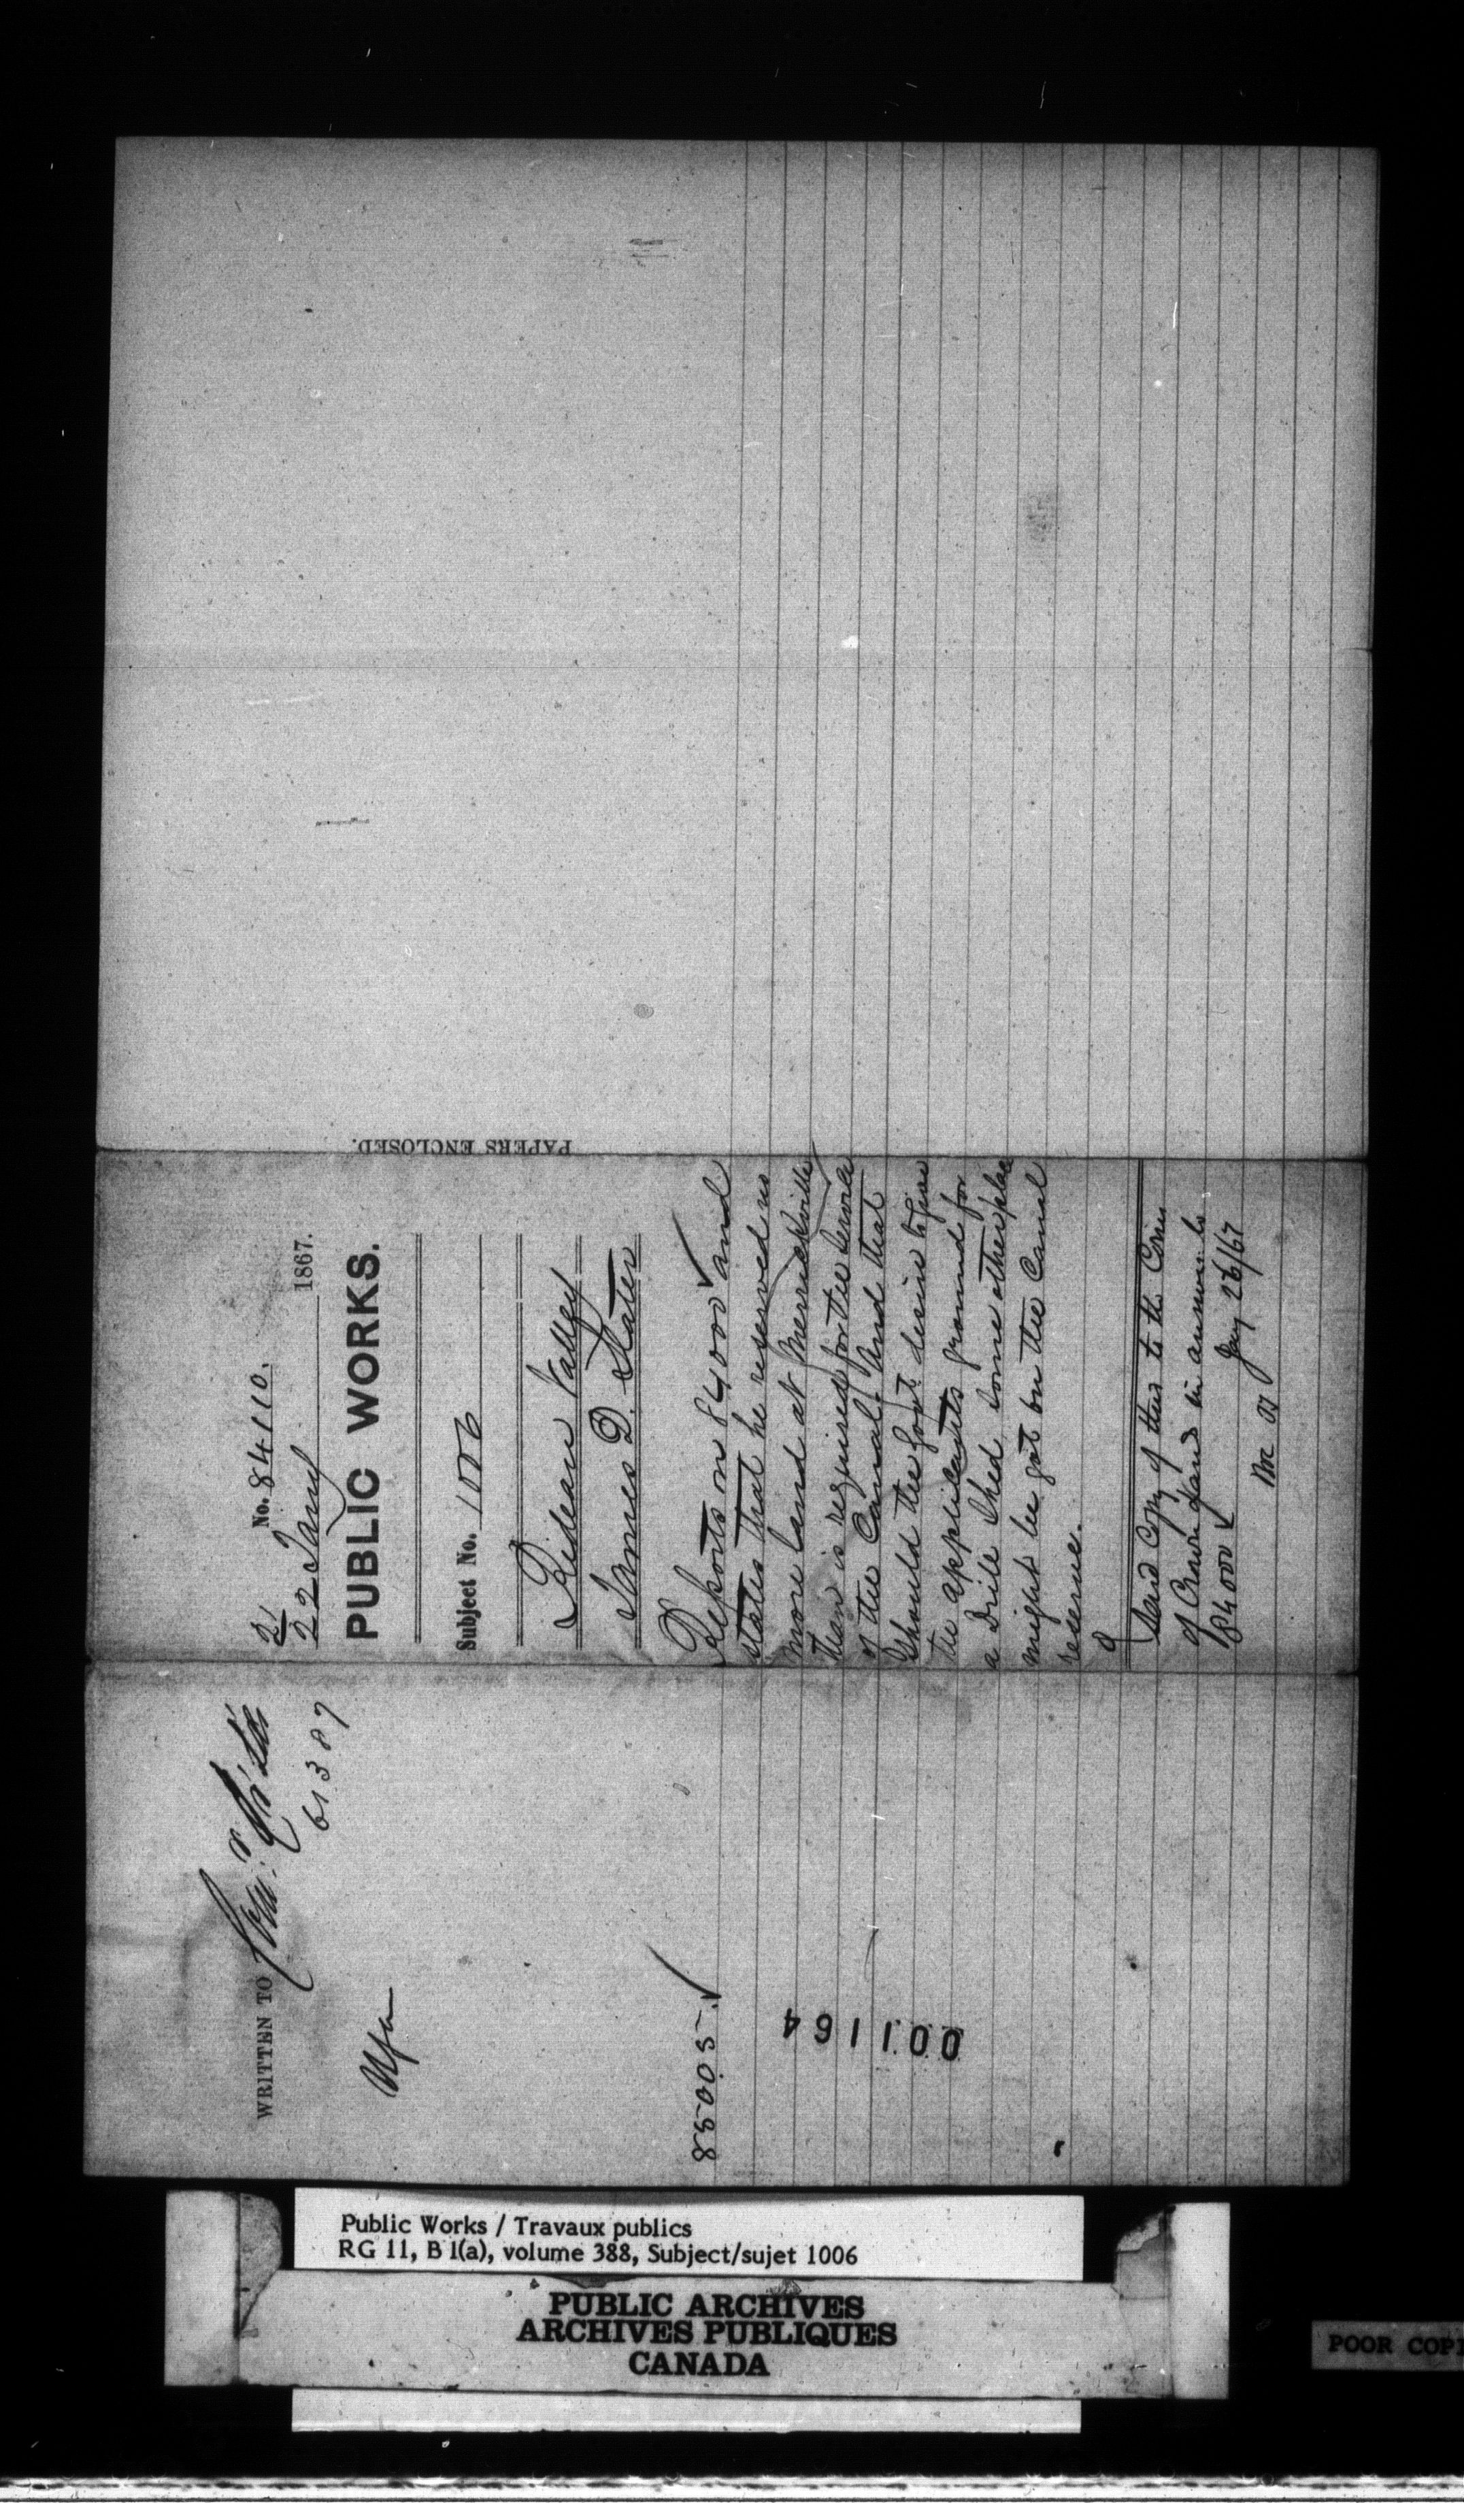 WRITTEN TO Com. Cr. Lds
61387
85005 ✓
001164
No. 84110.
21
22 Jany 1867.
PUBLIC WORKS.
Subject No. 1006
Rideau Valley
James D. Slater
Reports on 84000 ✓ and
states that he reserved us
more land at Merrickville
than is required for the service
of the Canal. And that
should the Govt. desire to give
the applicants ground for
a Drill Shed some other place
might be got on the Canal
reserve.
Send Copy of this to the Comr
of Crown Lands in answer to
84000 ✓ Jany 26/67
PAPERS ENCLOSED.
Public Works / Travaux publics
RG 11, B 1(a), volume 388, Subject/sujet 1006
PUBLIC ARCHIVES
ARCHIVES PUBLIQUES
CANADA
POOR COPY